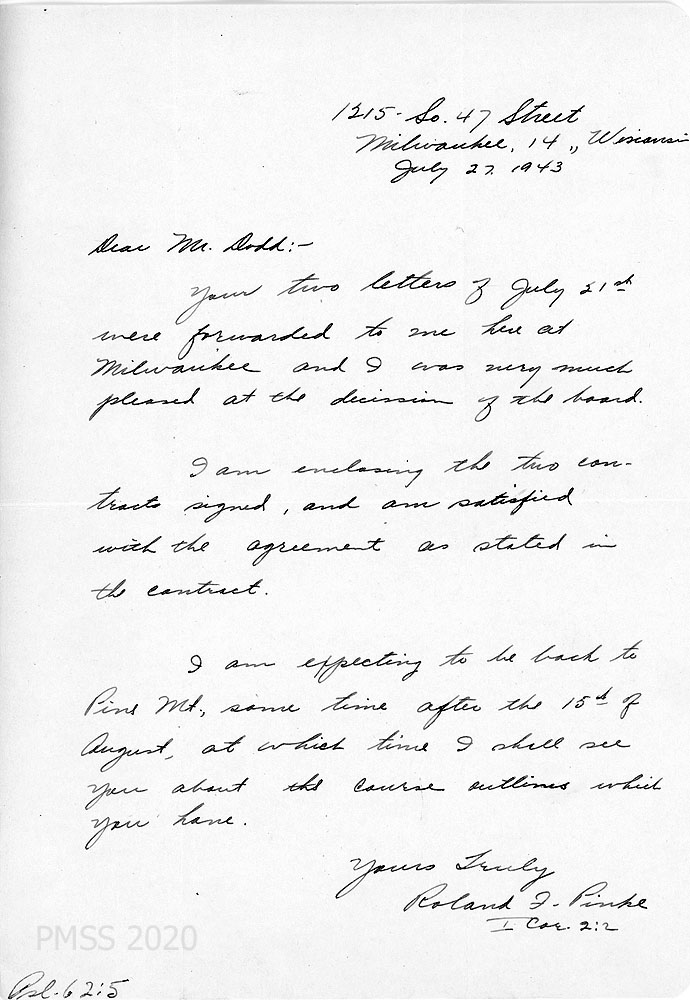 1215 - So. 47 Street
Milwaukee, 14, Wisconsin
July 27. 1943
Dear Mr. Dodd:-
Your two letters of July 21st
were forwarded to me here at
Milwaukee and I was very much
pleased at the decision of the board.
I am enclosing the two con-
tracts signed, and am satisfied
with the agreement as stated in
the contract.
I am expecting to be back to
Pine Mt., some time after the 15th of
August, at which time I shall see
you about the course outlines which
you have.
Yours Truly
Roland F. Pinke
I Cor. 2:2
PMSS 2020
Psl. 62:5